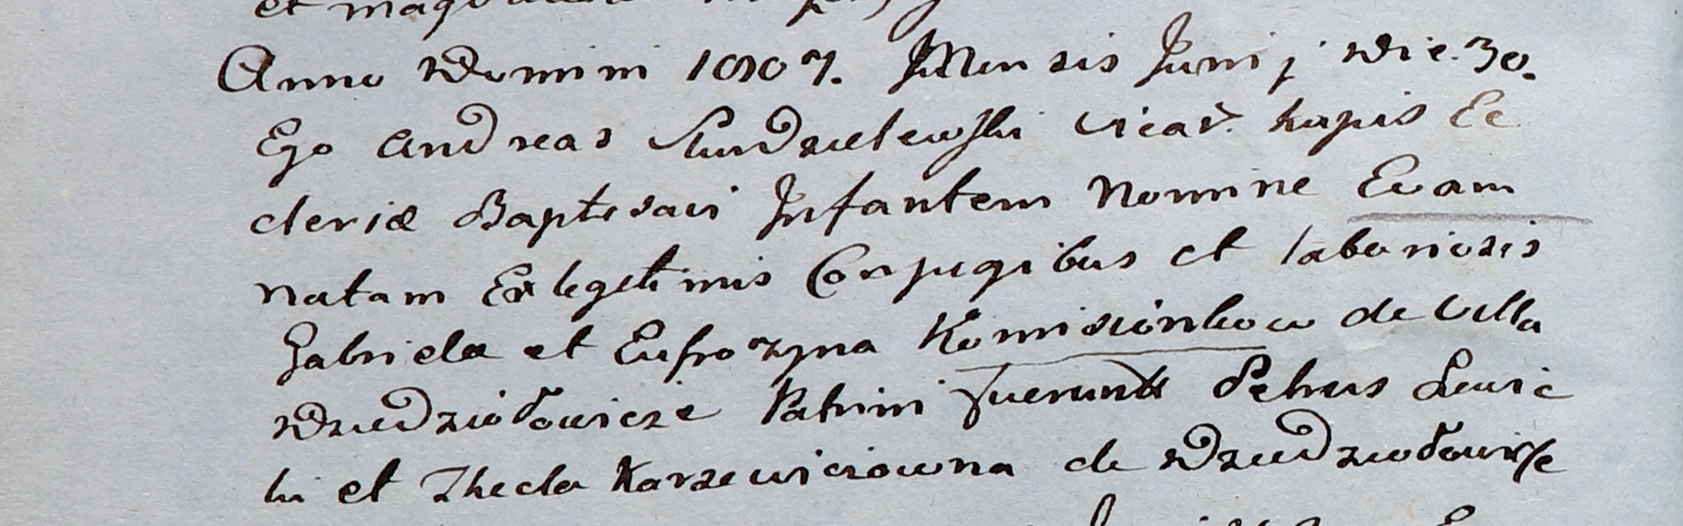 et mag
Anno Domini 1807. Mensis Junij Die. 30.
Ego Andreas Vicar. hujus Ec
clesiæ Baptisavi Infantem Nomine Evam
Natam Ex legitimis Conjugibus et laboriosis
Gabriela et Eufrozyna Komisionkow de Villa
Dziedziołowicze Patrini Fuerunt Petrus Lewic
ki et Thecla Karzewiciowna de Dziedziołowicze